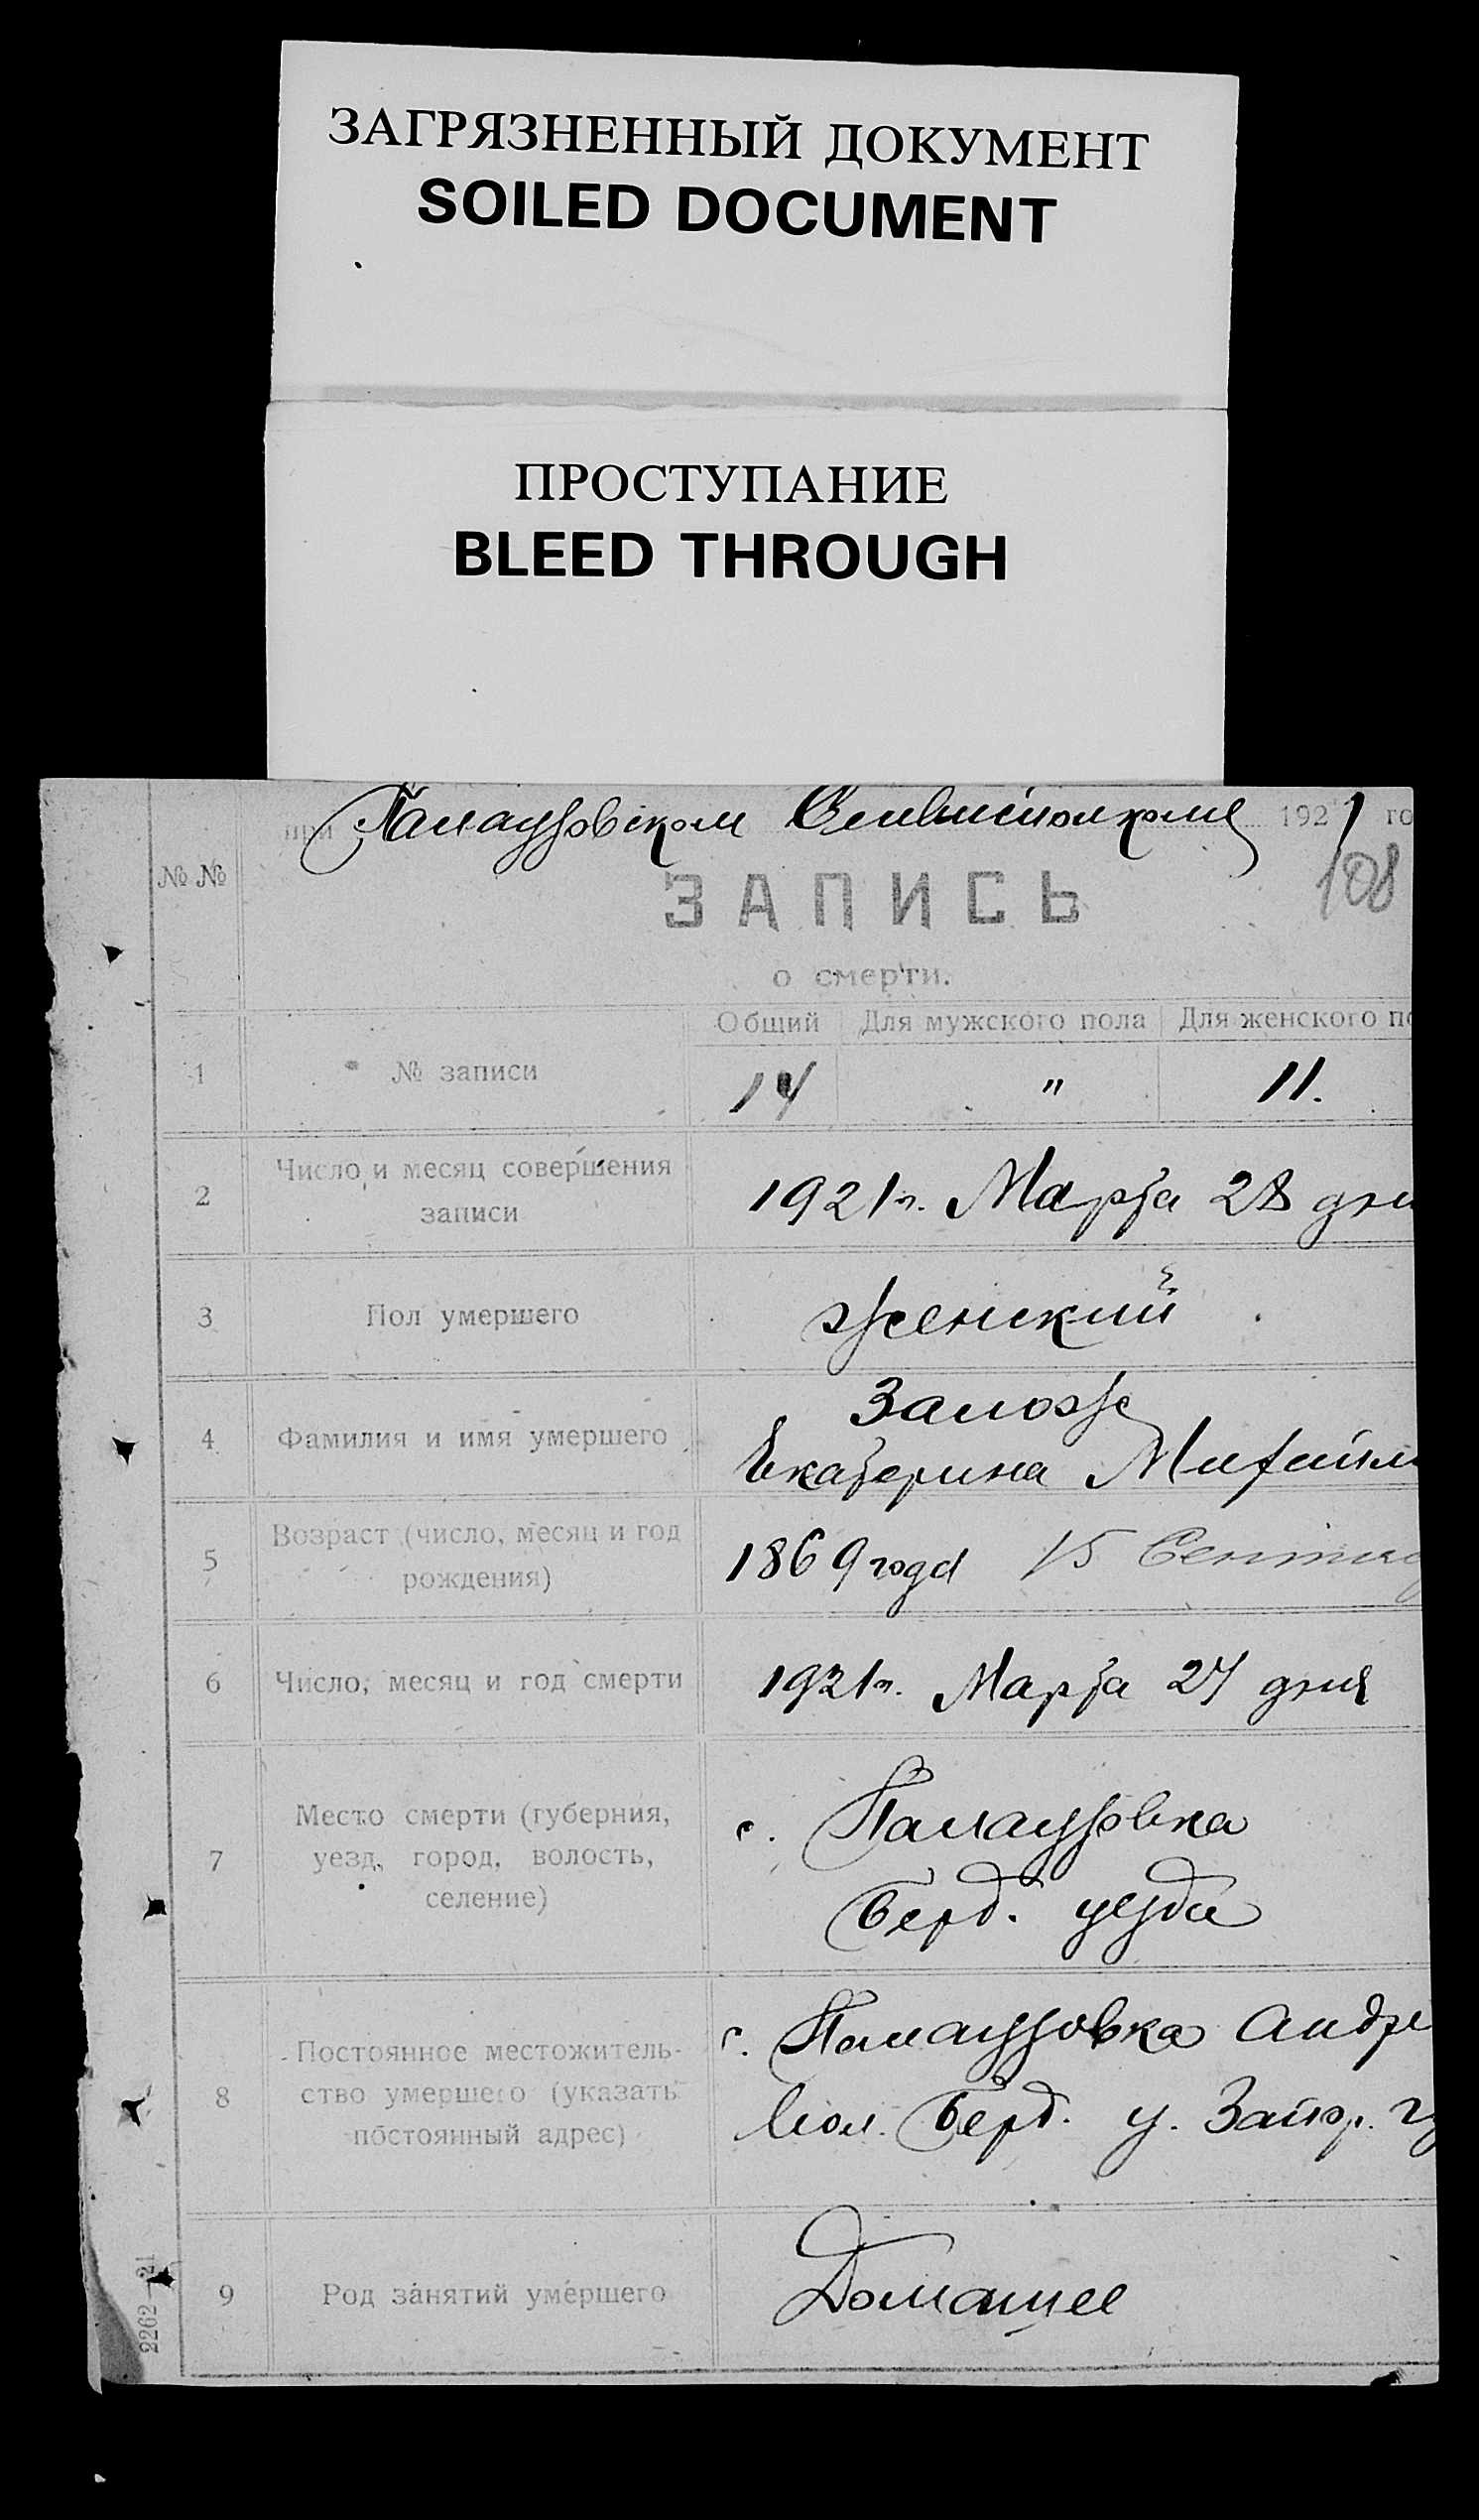 ЗАГРЯЗНЕННЫЙ ДОКУМЕНТ
SOILED DOCUMENT
ПРОСТУПАНИЕ
BLEED THROUGH
при Палаузовском 1921 го
108
№ №
ЗАПИСЬ
о смерти.
Общий Для мужского пола Для женского по
1 № записи 14 " 11.
2 Число и месяц совершения
записи
1921 г. Марта 28 дня
3 Пол умершего Женский
4 Фамилия и имя умершего
Екатерина Михайл
5 Возраст (число, месяц и год
рождения)
1869 года 15 Сентяб
6 Число, месяц и год смерти 1921 г. Марта 27 дня
7 Место смерти (губерния,
уезд, город, волость,
селение)
с. Палаузовка
Берд. уезда
8 Постоянное местожитель-
ство умершего (указать
постоянный адрес)
с. Палаузовка Андре
Вол. Берд. у. Запор. гу
9 Род занятий умершего Домашнее
2262—21